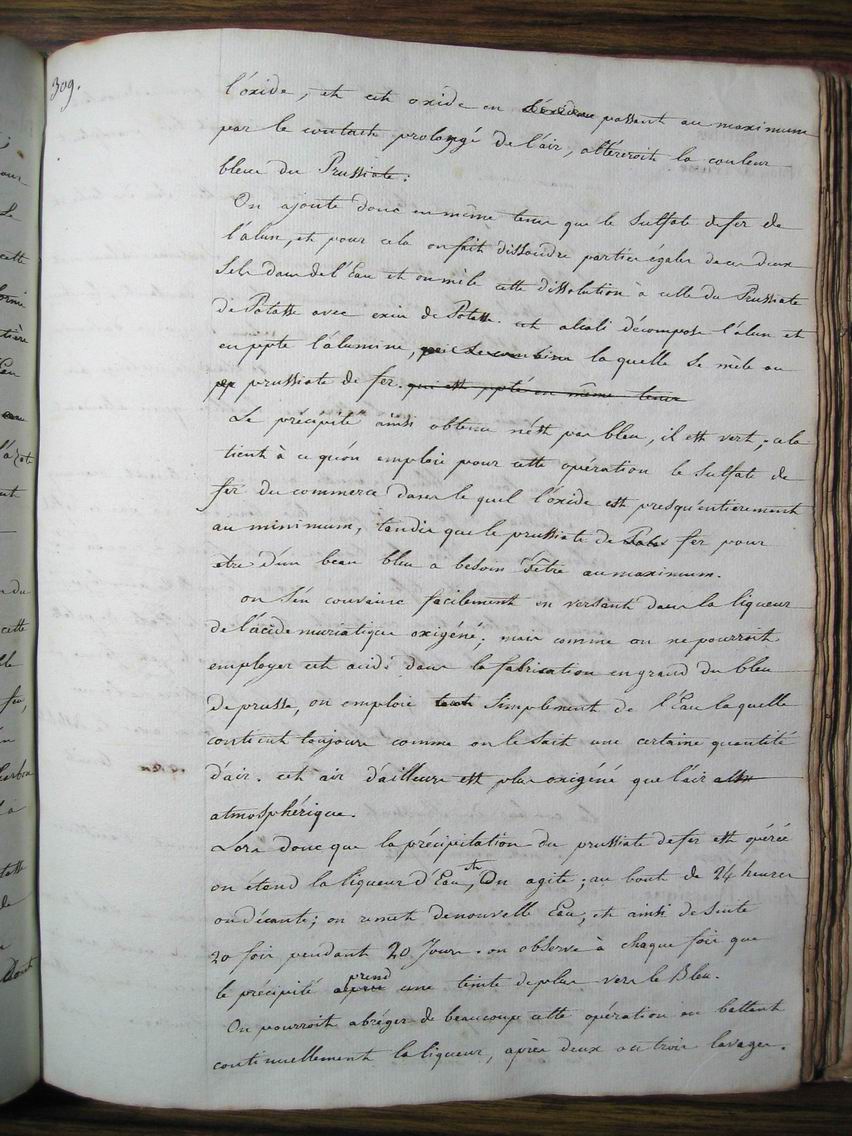 309.
l'oxide, et cet oxide en passant au maximum
par le contact prolongé de l'air, altéreroit la couleur
bleue du Prussiate.
On ajoute donc en même tems que le Sulfate de fer de
l'alun, et pour cela on fait dissoudre parties égales de ces deux
Sels dans de l'Eau et on mêle cette dissolution à celle du Prussiate
de Potasse avec excès de Potasse. cet alcali décompose l'alun et
en ppte l'alumine, qui se combine la quelle se mêle au
pp prussiate de fer. qui est ppté en même tems
Le précipité ainsi obtenu n'est pas bleu, il est vert; cela
tient à ce qu'on emploie pour cette opération le Sulfate de
fer du commerce dans le quel l'oxide est presqu'entièrement
au minimum, tandis que le prussiate de fer pour
etre d'un beau bleu a besoin d'être au maximum.
on s'en convainc facilement en versant dans la liqueur
de l'acide muriatique oxigéné; mais comme on ne pourroit
employer cet acide dans la fabrication en grand du bleu
de prusse, on emploie tout simplement de l'Eau laquelle
contient toujours comme on le sait une certaine quantité
d'air. cet air d'ailleurs est plus oxigéné que l'air
atmosphérique.
Lors donc que la précipitation du prussiate de fer est opérée
on étend la liqueur d'Eau, et On agite; au bout de 24 heures
on décante; on remet de nouvelle Eau, et ainsi de suite
20 fois pendant 20 Jours. on observe à chaque fois que
le précipité prend une teinte de plus vers le Bleu.
On pourroit abréger de beaucoup cette opération en battant
continuellement la liqueur, après deux ou trois lavages.